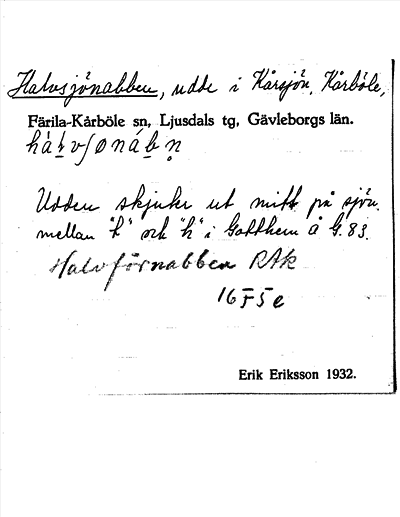 Halvsjönabben, udde i Kårsjön, Kårböle,
Färila-Kårböle sn, Ljusdals tg, Gävleborgs län.
Udden skjuter ut mitt på sjön.
mellan "k" och "k" i Gotthem å G. 83.
Halvförnabben RAK
16F5e
Erik Eriksson 1932.